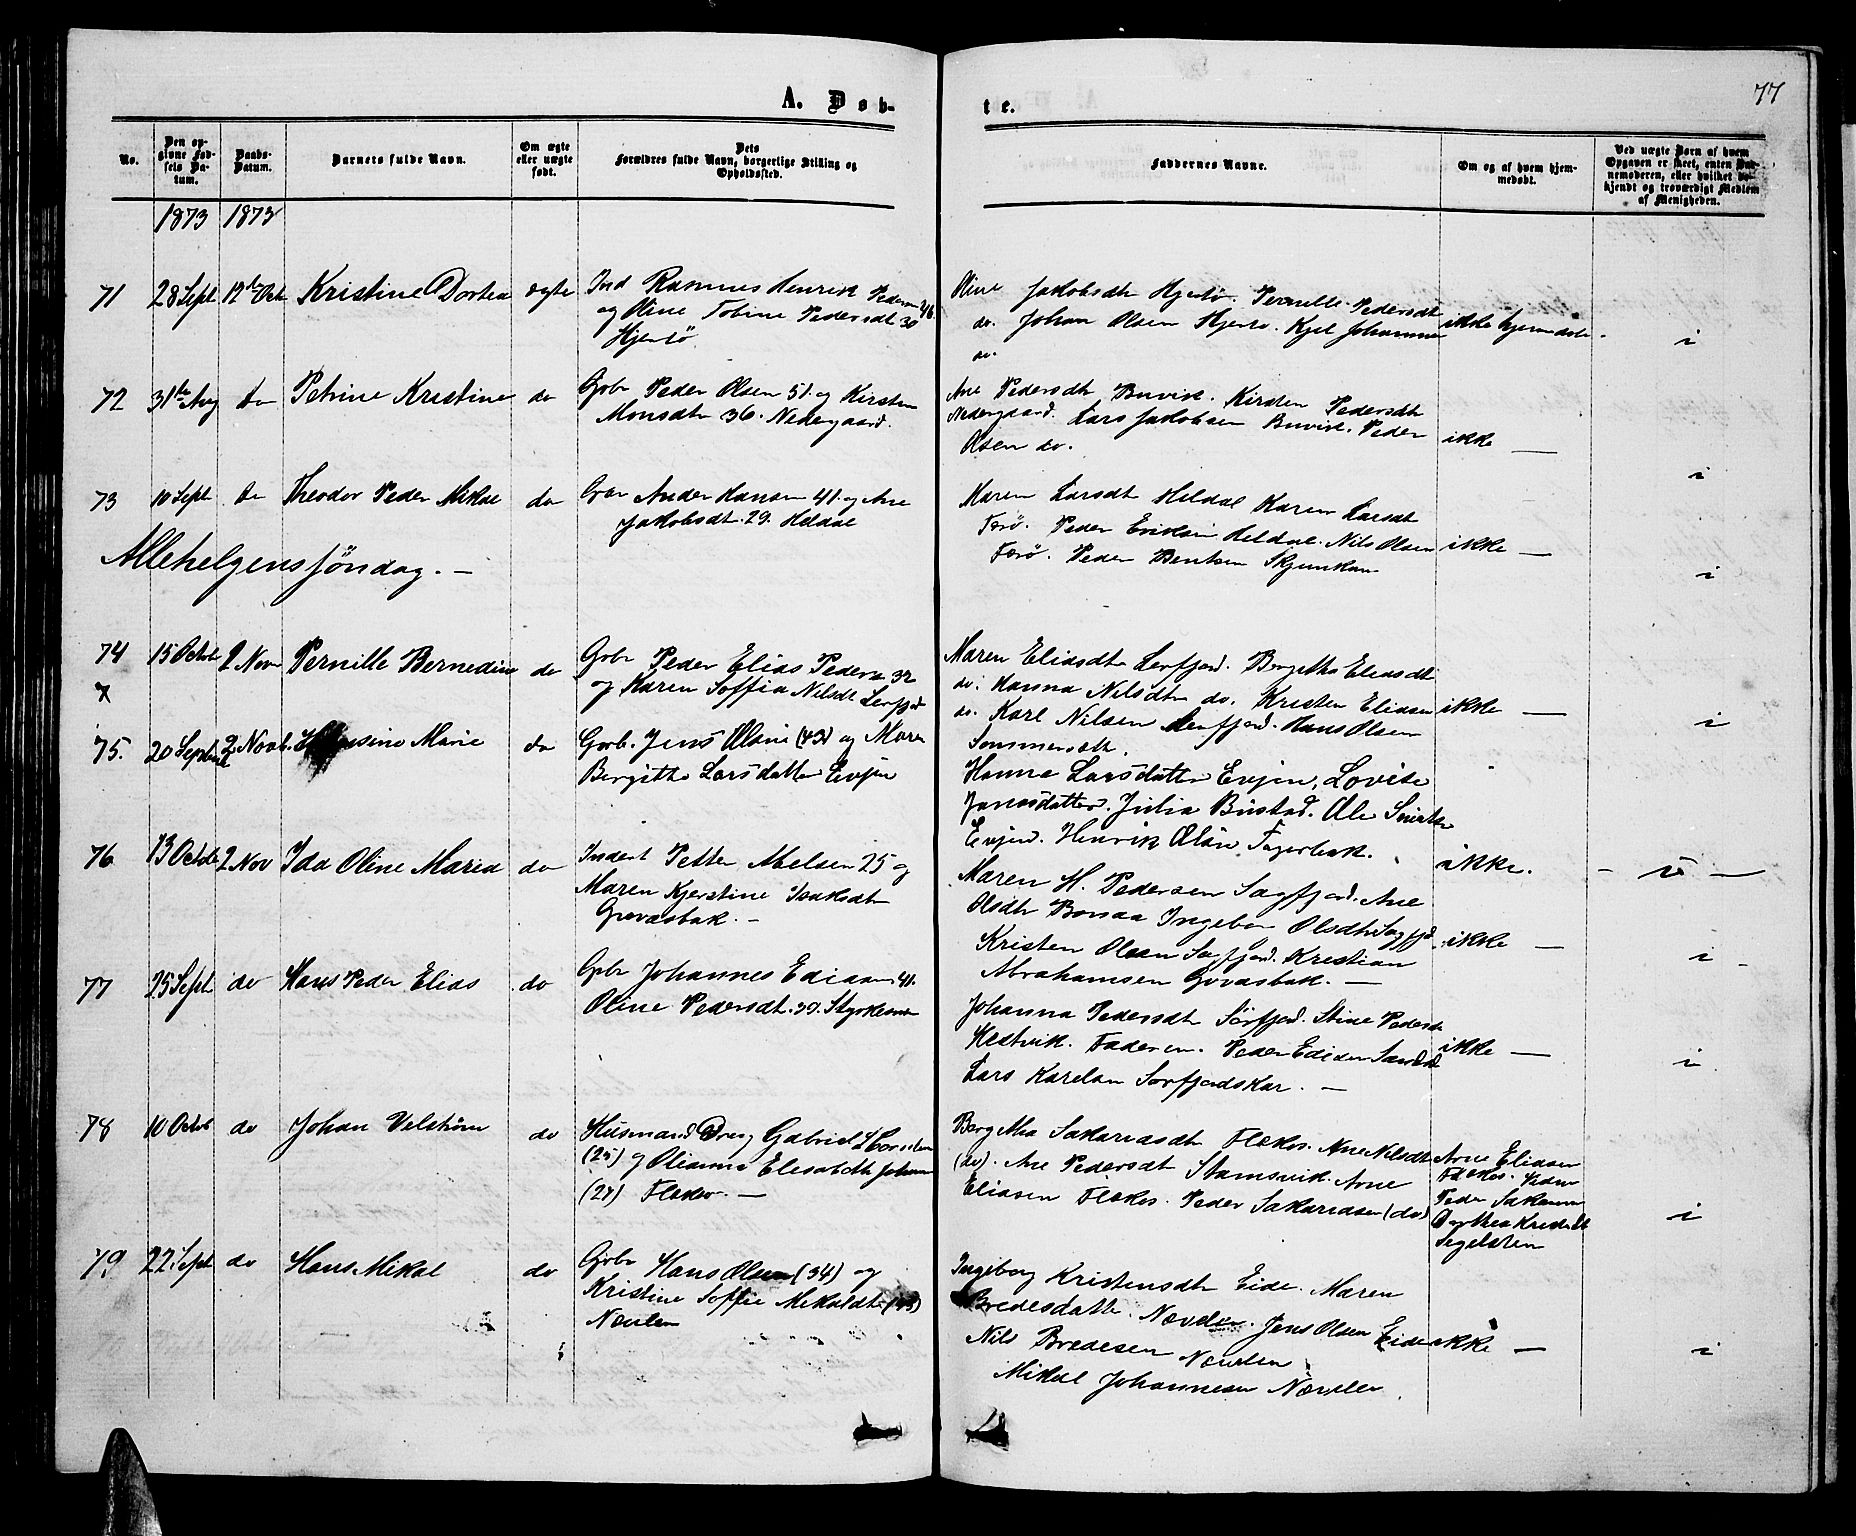 77
A. Døb-
te.
No.
Den op-
givne Fød-
sels Da-
tum.
Daabs-
Datum.
Barnets fulde Navn.
Om ægte
eller uægte
født.
Dets
Forældres fulde Navn, borgerlige Stilling og
Opholdssted.
Faddernes Navne.
Om og af hvem hjem-
medøbt.
Ved uægte Børn af hvem
Opgaven er skeet, enten Bar-
nemoderen, eller hvilket be-
kjendt og troværdigt Medlem
af Menigheden.
1873 1873
71 28 Sept 12te Oct Kristine Dortea ægte
Ind Rasmus Henrik Pedersen 46.
og Oline Tobine Pedersdt 30
Hjertø
Oline Jakobsdt Hjertø. Pernille Pedersdt
do. Johan Olsen Hjertø. Kjel Johannsen
do.
ikke hjemdøbt.
i
72 31te Aug Do Petrine Kristine do
Gbr Peder Olsen 51. og Kirsten
Monsdtr 36. Nedergaard.
Ane Pedersdt Buvik. Kirsten Pedersdt
Nedergaard. Lars Jakobsen Buvik. Peder
Olsen do.
ikke —
i
73 10 Sept Do Theodor Peder Mikal do
Gbr Ander Hansen 41. og Ane
Jakobsdt. 29. Heldal
Maren Larsdt Heldal Karen Larsdt
Færø. Peder Eriksen Heldal. Nils Olsen
Færø. Peder Bentsen
ikke —
i
Allehelgensføndag. —
74 15 Octob 2 Nov Pernille Bernedine do
Gbr Peder Elias Pedersen 32
og Karen Soffia Nilsdt Lerfjord
Maren Eliasdtr Lerfjord. Bergitha Eliasdt
do. Hanna Nilsdtr do. Kristen Eliasen
do. Karl Nilsen Lerfjord. Hans Olsen
Sommersæth.
ikke —
i
x
75. 20 Septbr 2 Novb. Marie do
Gaarb. Jens Olsen (43) og Maren
Bergitte Larsdatter Evjen
Hanna Larsdatter Evjen, Lovise
Jonasdatter. Julia Bustad. Ole
Evjen. Henrik Olsen Fagerbak.
ikke.
— i —
76 13 Octobr 2 Nov Ida Oline Maria do
Inderst Petter Abelsen 25 og
Maren Kjerstine Isaksdtr
Grovasbak. —
Maren H. Pedersen Sagfjord. Ane
Olsdtr Bonaa Ingebor Olsdtr Sagfjd.
Kristen Olsen Sagfjord. Krestian
Abrahamsen Grovasbak. —
ikke —
i —
77 25 Sept do Hans Peder Elias do
Gbr Johannes Ediasen 41.
Oline Pedersdt. 39. Styrkesnes
Johanna Pedersdt Sørfjord. Stine Pedersd
Hestvik. Faderen. Peder Edisen
Lars Karelsen Sørfjordskar. —
ikke —
i
78 10 Octob do Johan Velstrøm do
Husmand Dreng Gabriel
(25) og Olianna Elesabeth Johann
(27) Flækes. —
Bergitha Sakariasdt Flækes. Ane Nilsdt
(do). Ane Pedersdt Stamsvik. Arne
Eliasen Flækes. Peder Sakariasen (do)
Arne Eliasen
Flækes.
Peder Sakarias
Dorthea
Segelsten
i
79 22 Sept do Hans Mikal do
Gbr Hans Olsen (34) og
Kristine Soffie Mikaldtr
Nævelen
Ingeborg Kristensdt Eide. Maren
Bredesdatt. Nævelen. Jens Olsen Eide
Nils Bredesen Nævelen
Mikal Johannesen Nævelen.
ikke —
i